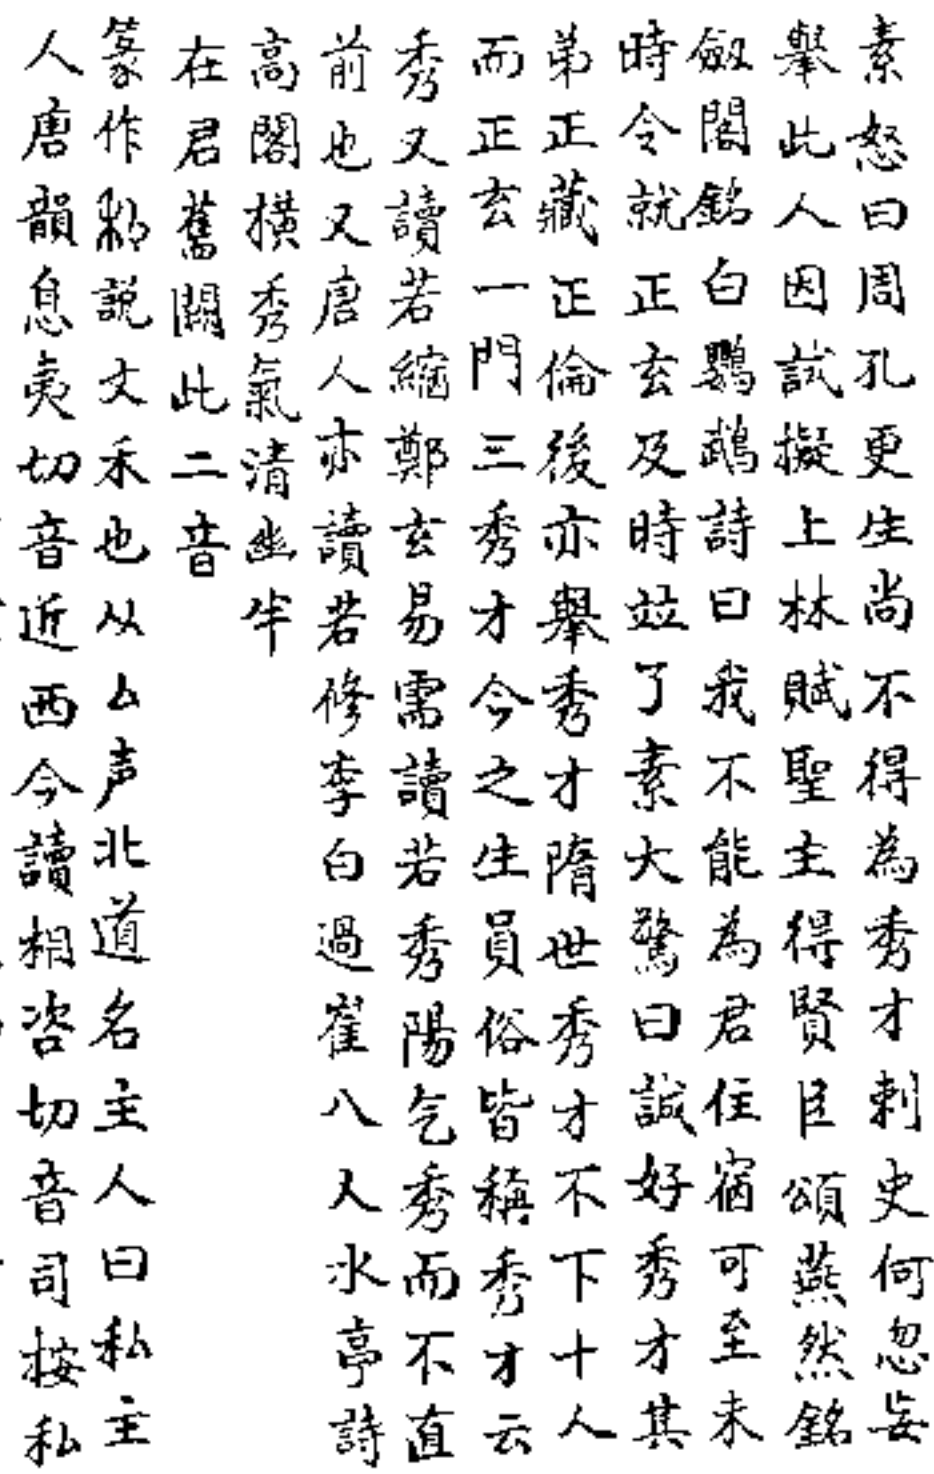 素怒曰周孔更生尚不得為秀才刺史何忽妄
舉此人因試擬上林賦聖主得賢臣頌燕然銘
劔閣銘白鸚鵡詩曰我不能為君住宿可至未
時令就正玄及時竝了素大驚曰誠好秀才其
弟正藏正倫後亦舉秀才隋世秀才不下十人
而正玄一門三秀才今之生員俗皆稱秀才云
秀又讀若縮鄭玄易需讀若秀陽气秀而不直
前也又唐人亦讀若修李白過崔八丈水亭詩
高閣橫秀氣清幽半
在君舊關此二音
篆作㓝說文禾也从厶声北道名主人曰私主
人唐韻息夷切音近西今讀相咨切音司按私